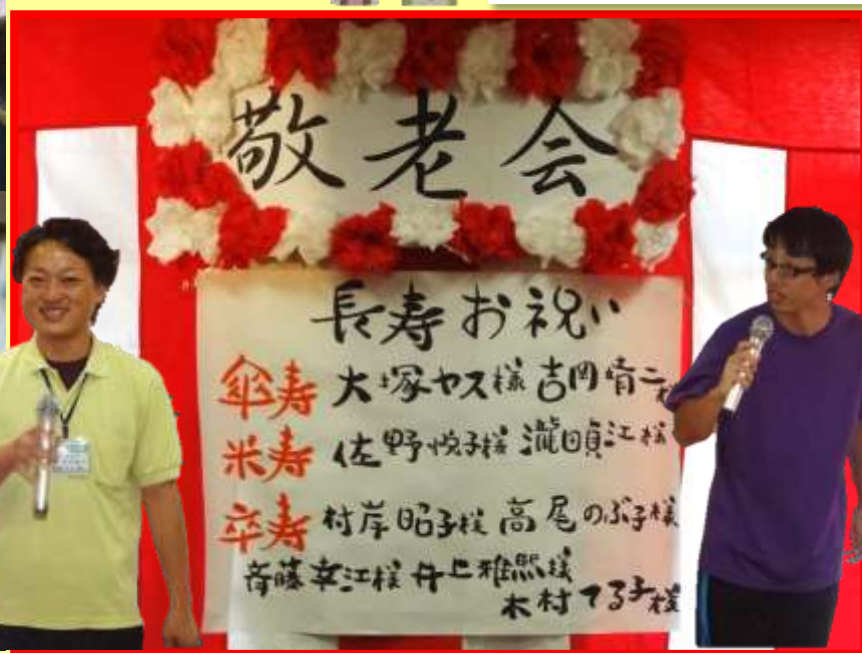 敬老会
長寿お祝い
傘寿 大塚ヤス様 吉岡情二様
米寿 佐野悦子様 瀧田貞江様
卒寿 村岸昭子様 高尾のぶ子様
斉藤幸江様 井上雅熙様
木村てる子様